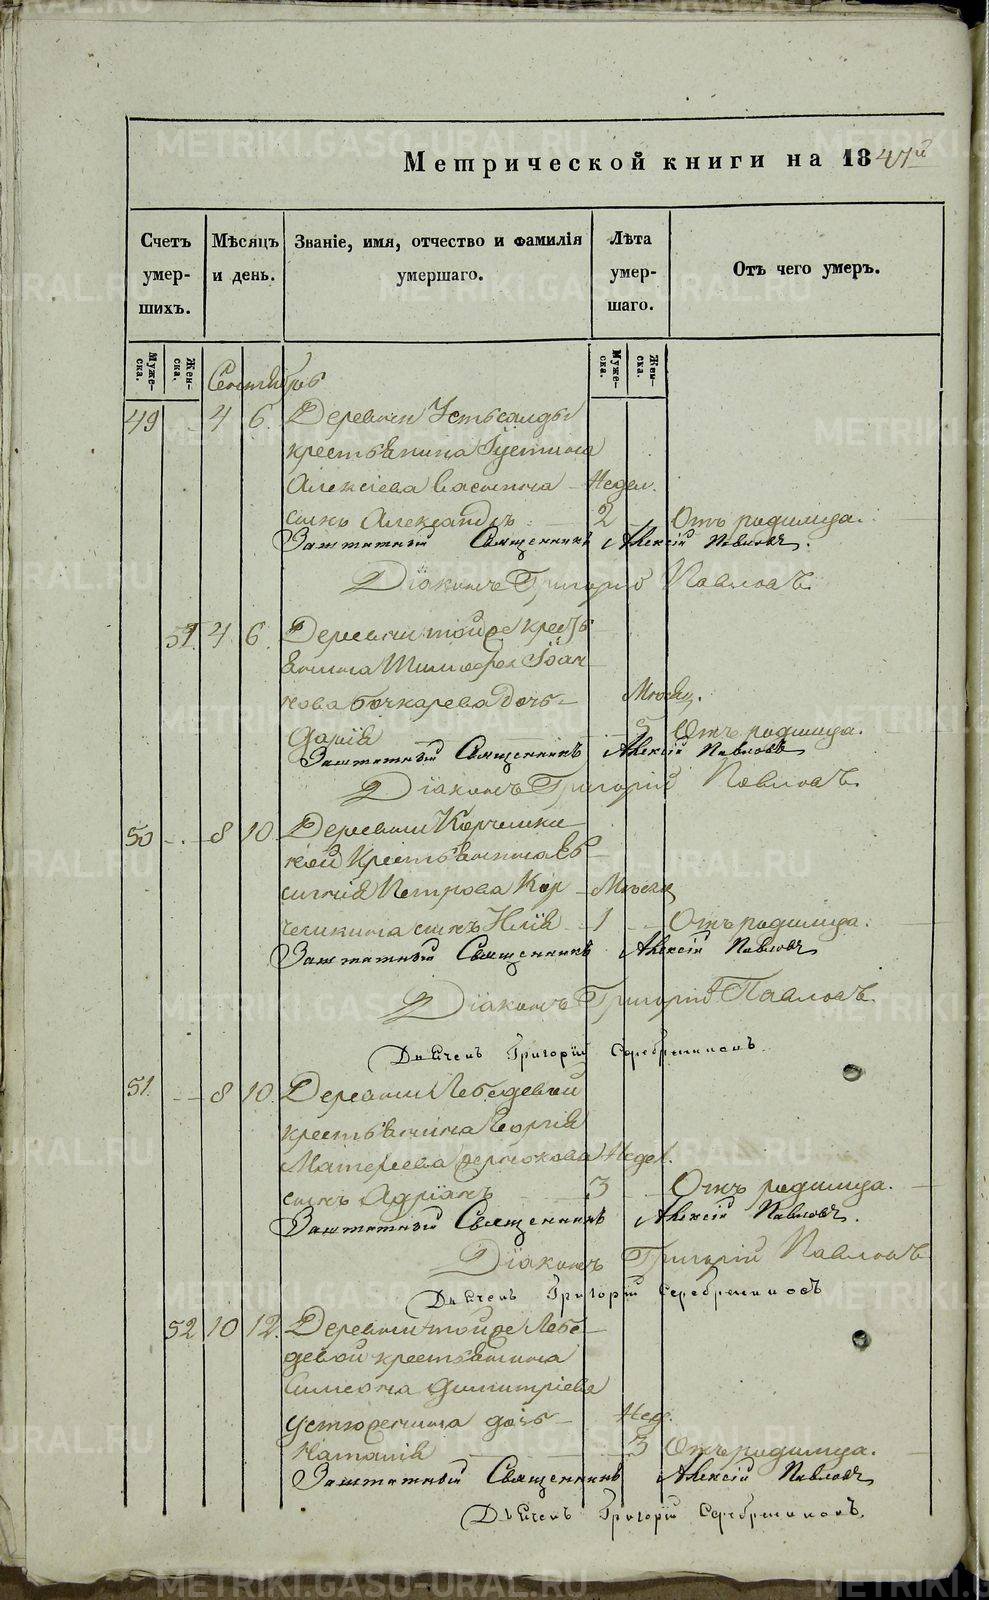 Метрической книги на 1847й
Счетъ умер- шихъ.
Мѣсяцъ и день.
Званіе, имя, отчество и фамилія умершаго.
Лѣта умер- шаго.
Отъ чего умеръ.
Муже- ска.
Жен- ска.
Муже- ска.
Жен- ска.
Сентябрь
49 4 6 Деревни Устьсалды
крестьянина Густина
Алексіева Васькина Недел.
сынъ Александръ 2 Отъ родимца.
Заштатный Священникъ Алексій Павловъ.
Діаконъ Григорій Павловъ
51. 4 6. Деревни тойже кресть
янина Тимофея Іоан
нова Бочкарева дочь Мѣсяц.
Дарія 5 Отъ родимца.
Заштатный Священникъ Алексій Павловъ
Діаконъ Григорій Павловъ.
50 8 10 Деревни
кой Крестьянина Ев
сигнія Петрова Кор Мѣсяц
чемкина сынъ Илія 1 Отъ родимца.
Заштатный Священникъ Алексій Павловъ
Діаконъ Григорій Павловъ.
Дьячекъ Григорій Серебренниковъ.
51. 8 10. Деревни Лебедевой
крестьянина Георгія
Недел.
сынъ Адріанъ 3 Отъ родимца.
Заштатный Священникъ Алексій Павловъ.
Діаконъ Григорій Павловъ
Дьячекъ Григорій Серебренниковъ
52 10 12. Деревни тойже Лебе
девой крестьянина
Симеона Димитріева
Устюженина дочь Нед.
Наталія 3 Отъ родимца.
Заштатный Священникъ Алексій Павловъ
Дьячекъ Григорій Серебренниковъ.
METRIKI.GASO-URAL.RU